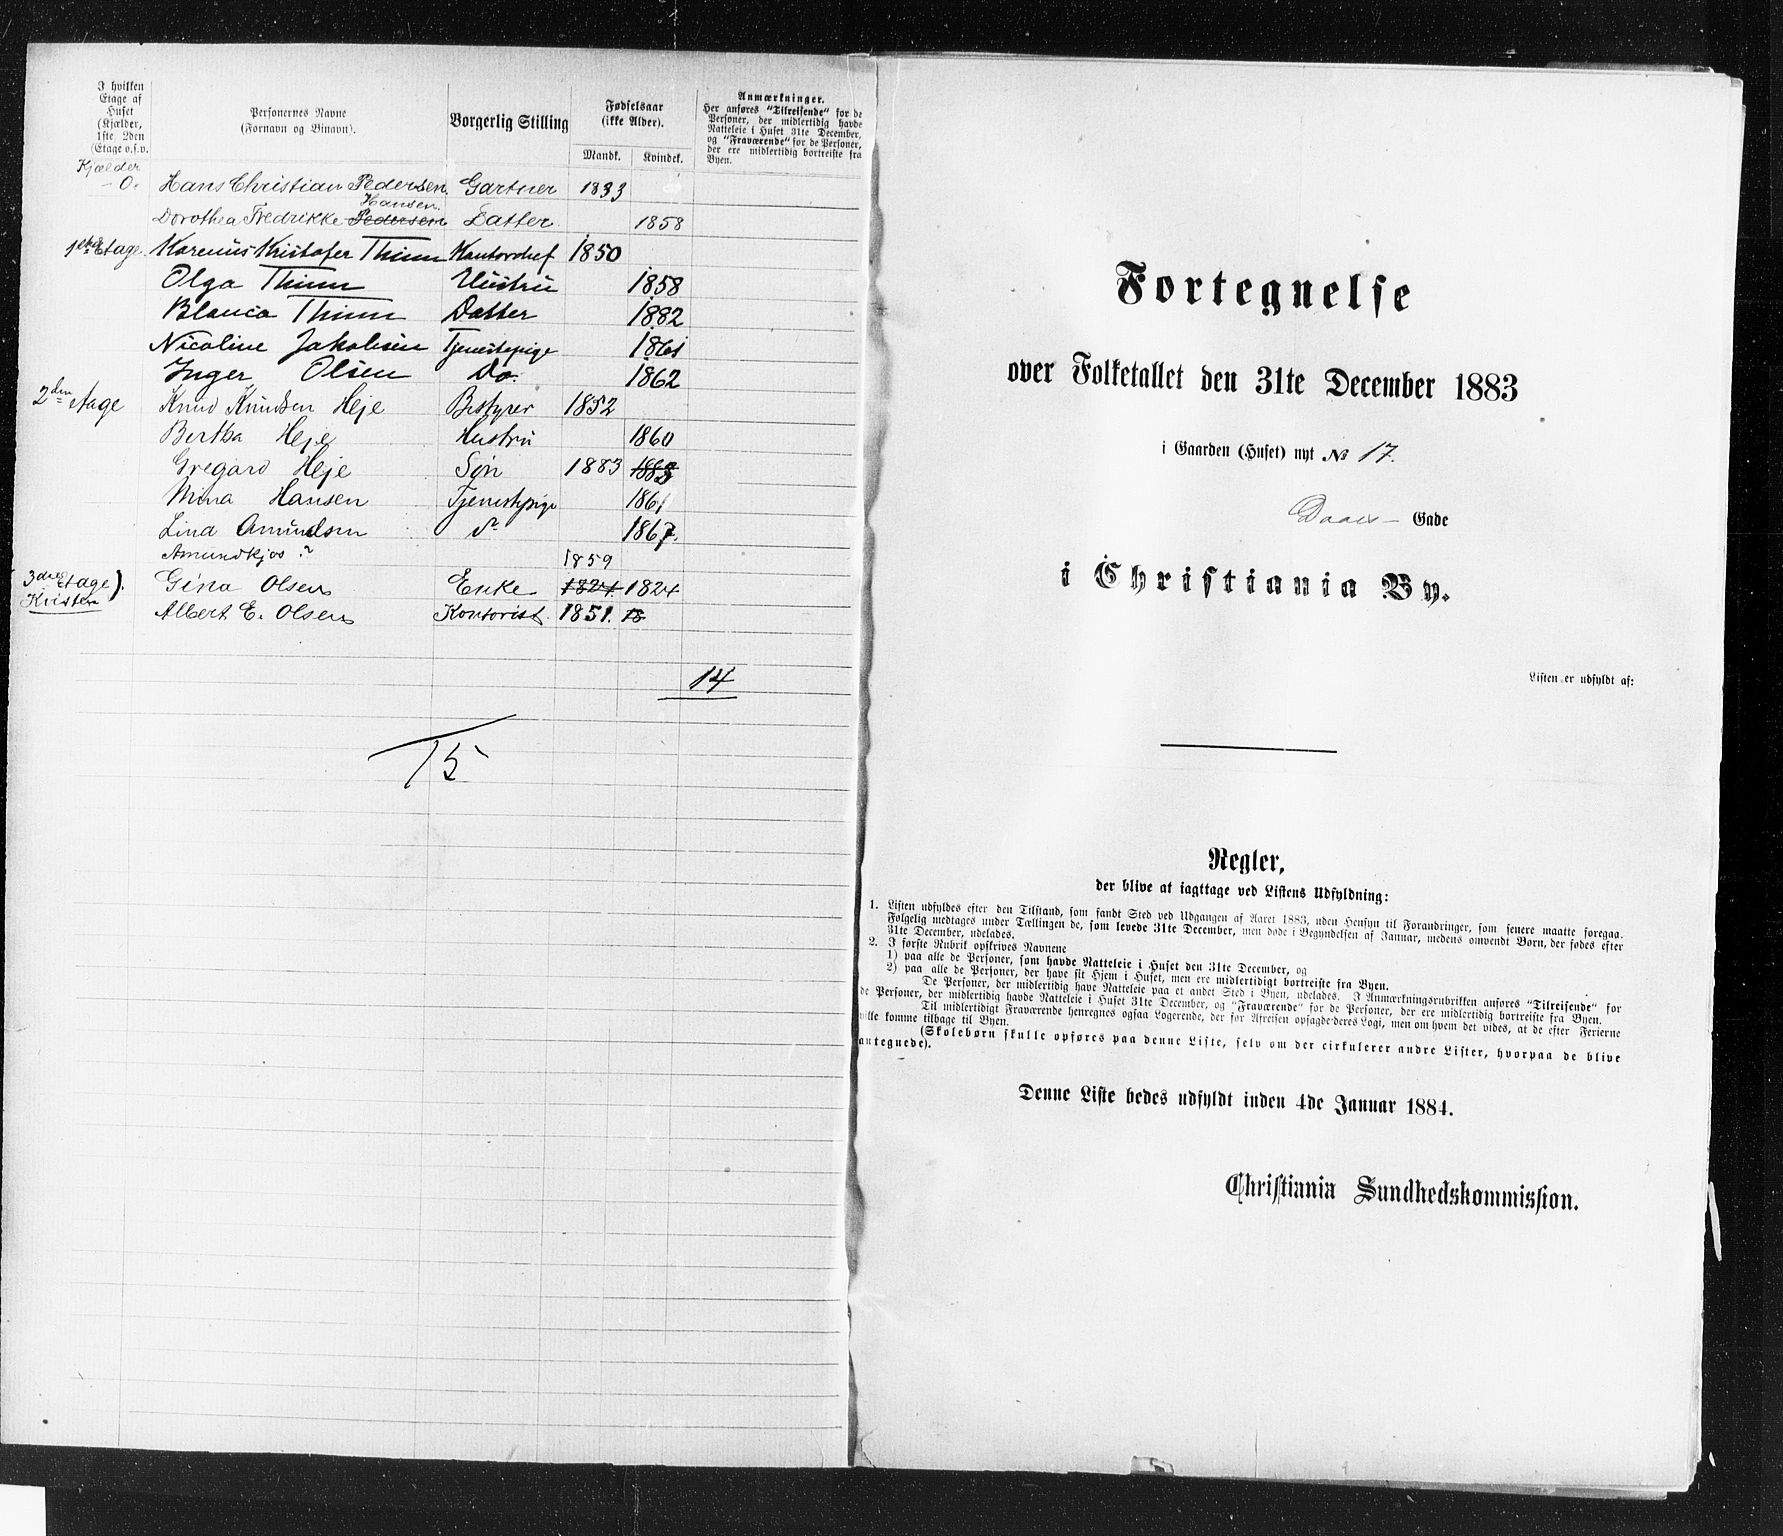 I hvilken
Etage af
Huset
(Kjælder,
1ste, 2den
(Etage o. s. v.
Personernes Navne
(Fornavn og Binavn).
Borgerlig Stilling
Fødselsaar
(ikke Alder).
Mandk. Kvindek.
Anmærkninger.
Her anføres "Tilreisende" for de
Personer, der midlertidig havde
Natteleie i Huset 31te December,
og "Fraværende" for de Personer,
der ere midlertidig bortreiste fra
Byen.
Kjælder
-0. Hans Christian Pedersen Gartner 1833
Hansen
Dorothea Fredrikke Pedersen Datter 1858
1ste Etage. Karenius Kristofer Thune 1850
Olga Thune Hustru 1858
Blanca Thune Datter 1882
Nicoline Jakobsen Tjenestepige 1861
Inger Olsen Do. 1862
2den etage Knud Knudsen Heje Bestyrer 1852
Bertha Heje Hustru 1860
Gregard Heje Søn 1883 1883
Mina Hansen Tjenestepige 1861
Lina Amundsen do 1867.
Amundkjos ? 1859
3die etage). Gina Olsen Enke 1824. 1824
Albert E. Olsen Kontorist. 1851. 18
14
15
Fortegnelse
over Folketallet den 31te December 1883
i Gaarden (Huset) nyt No 17.
Daaes- Gade
i Christiania By.
Listen er udfyldt af:
Regler,
der blive at iagttage ved Listens Udfyldning:
1. Listen udfyldes efter den Tilstand, som fandt Sted ved Udgangen af Aaret 1883, uden Hensyn til Forandringer, som senere maatte foregaa.
Følgelig medtages under Tællingen de, som levede 31te December, men døde i Begyndelsen af Januar, medens omvendt Børn, der fødes efter
31te December, udelades.
2. I første Rubrik opskrives Navnene
1) paa alle de Personer, som havde Natteleie i Huset den 31te December, og
2) paa alle de Personer, der have sit Hjem i Huset, men ere midlertidigt bortreiste fra Byen.
De Personer, der midlertidig have Natteleie paa et andet Sted i Byen, udelades. I Anmærkningsrubrikken anføres "Tilreisende" for
de Personer, der midlertidig havde Natteleie i Huset 31te December, og "Fraværende" for de Personer, der ere midlertidig bortreiste fra Byen.
Til midlertidigt Fraværende henregnes ogsaa Logerende, der før Afreisen opsagde deres Logi, men om hvem det vides, at de efter Ferierne
ville komme tilbage til Byen.
(Skolebørn skulle opføres paa denne Liste, selv om der cirkulerer andre Lister, hvorpaa de blive
antegnede).
Denne Liste bedes udfyldt inden 4de Januar 1884.
Christiania Sundhedskommission.